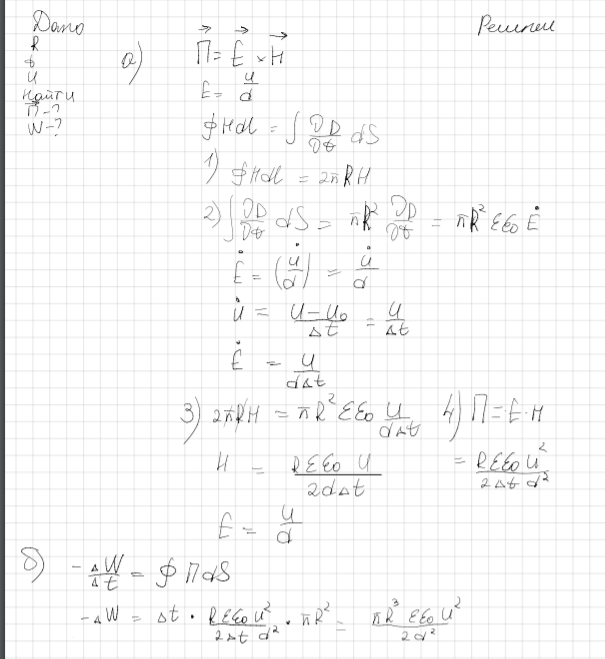 Дано
R
t
U
Найти
П-?
W-?
Решение
а) П⃗ = E⃗ × H⃗
E = U/d
∮Hdl = ∫ ∂D/∂t dS
1) ∮Hdl = 2πRH
2) ∫ ∂D/∂t dS = πR² ∂D/∂t = πR² εε₀ Ė
Ė = (U̇/d) = U̇/d
U̇ = (U-U₀)/Δt = U/Δt
Ė = U/(dΔt)
3) 2πRH = πR² εε₀ U/(dΔt)
H = Rεε₀U/(2dΔt)
E = U/d
4) П = E·H
= Rεε₀U²/(2Δt d²)
б) -ΔW/Δt = ∮ПdS
-ΔW = Δt · Rεε₀U²/(2Δt d²) · πR² = πR³εε₀U²/(2d²)